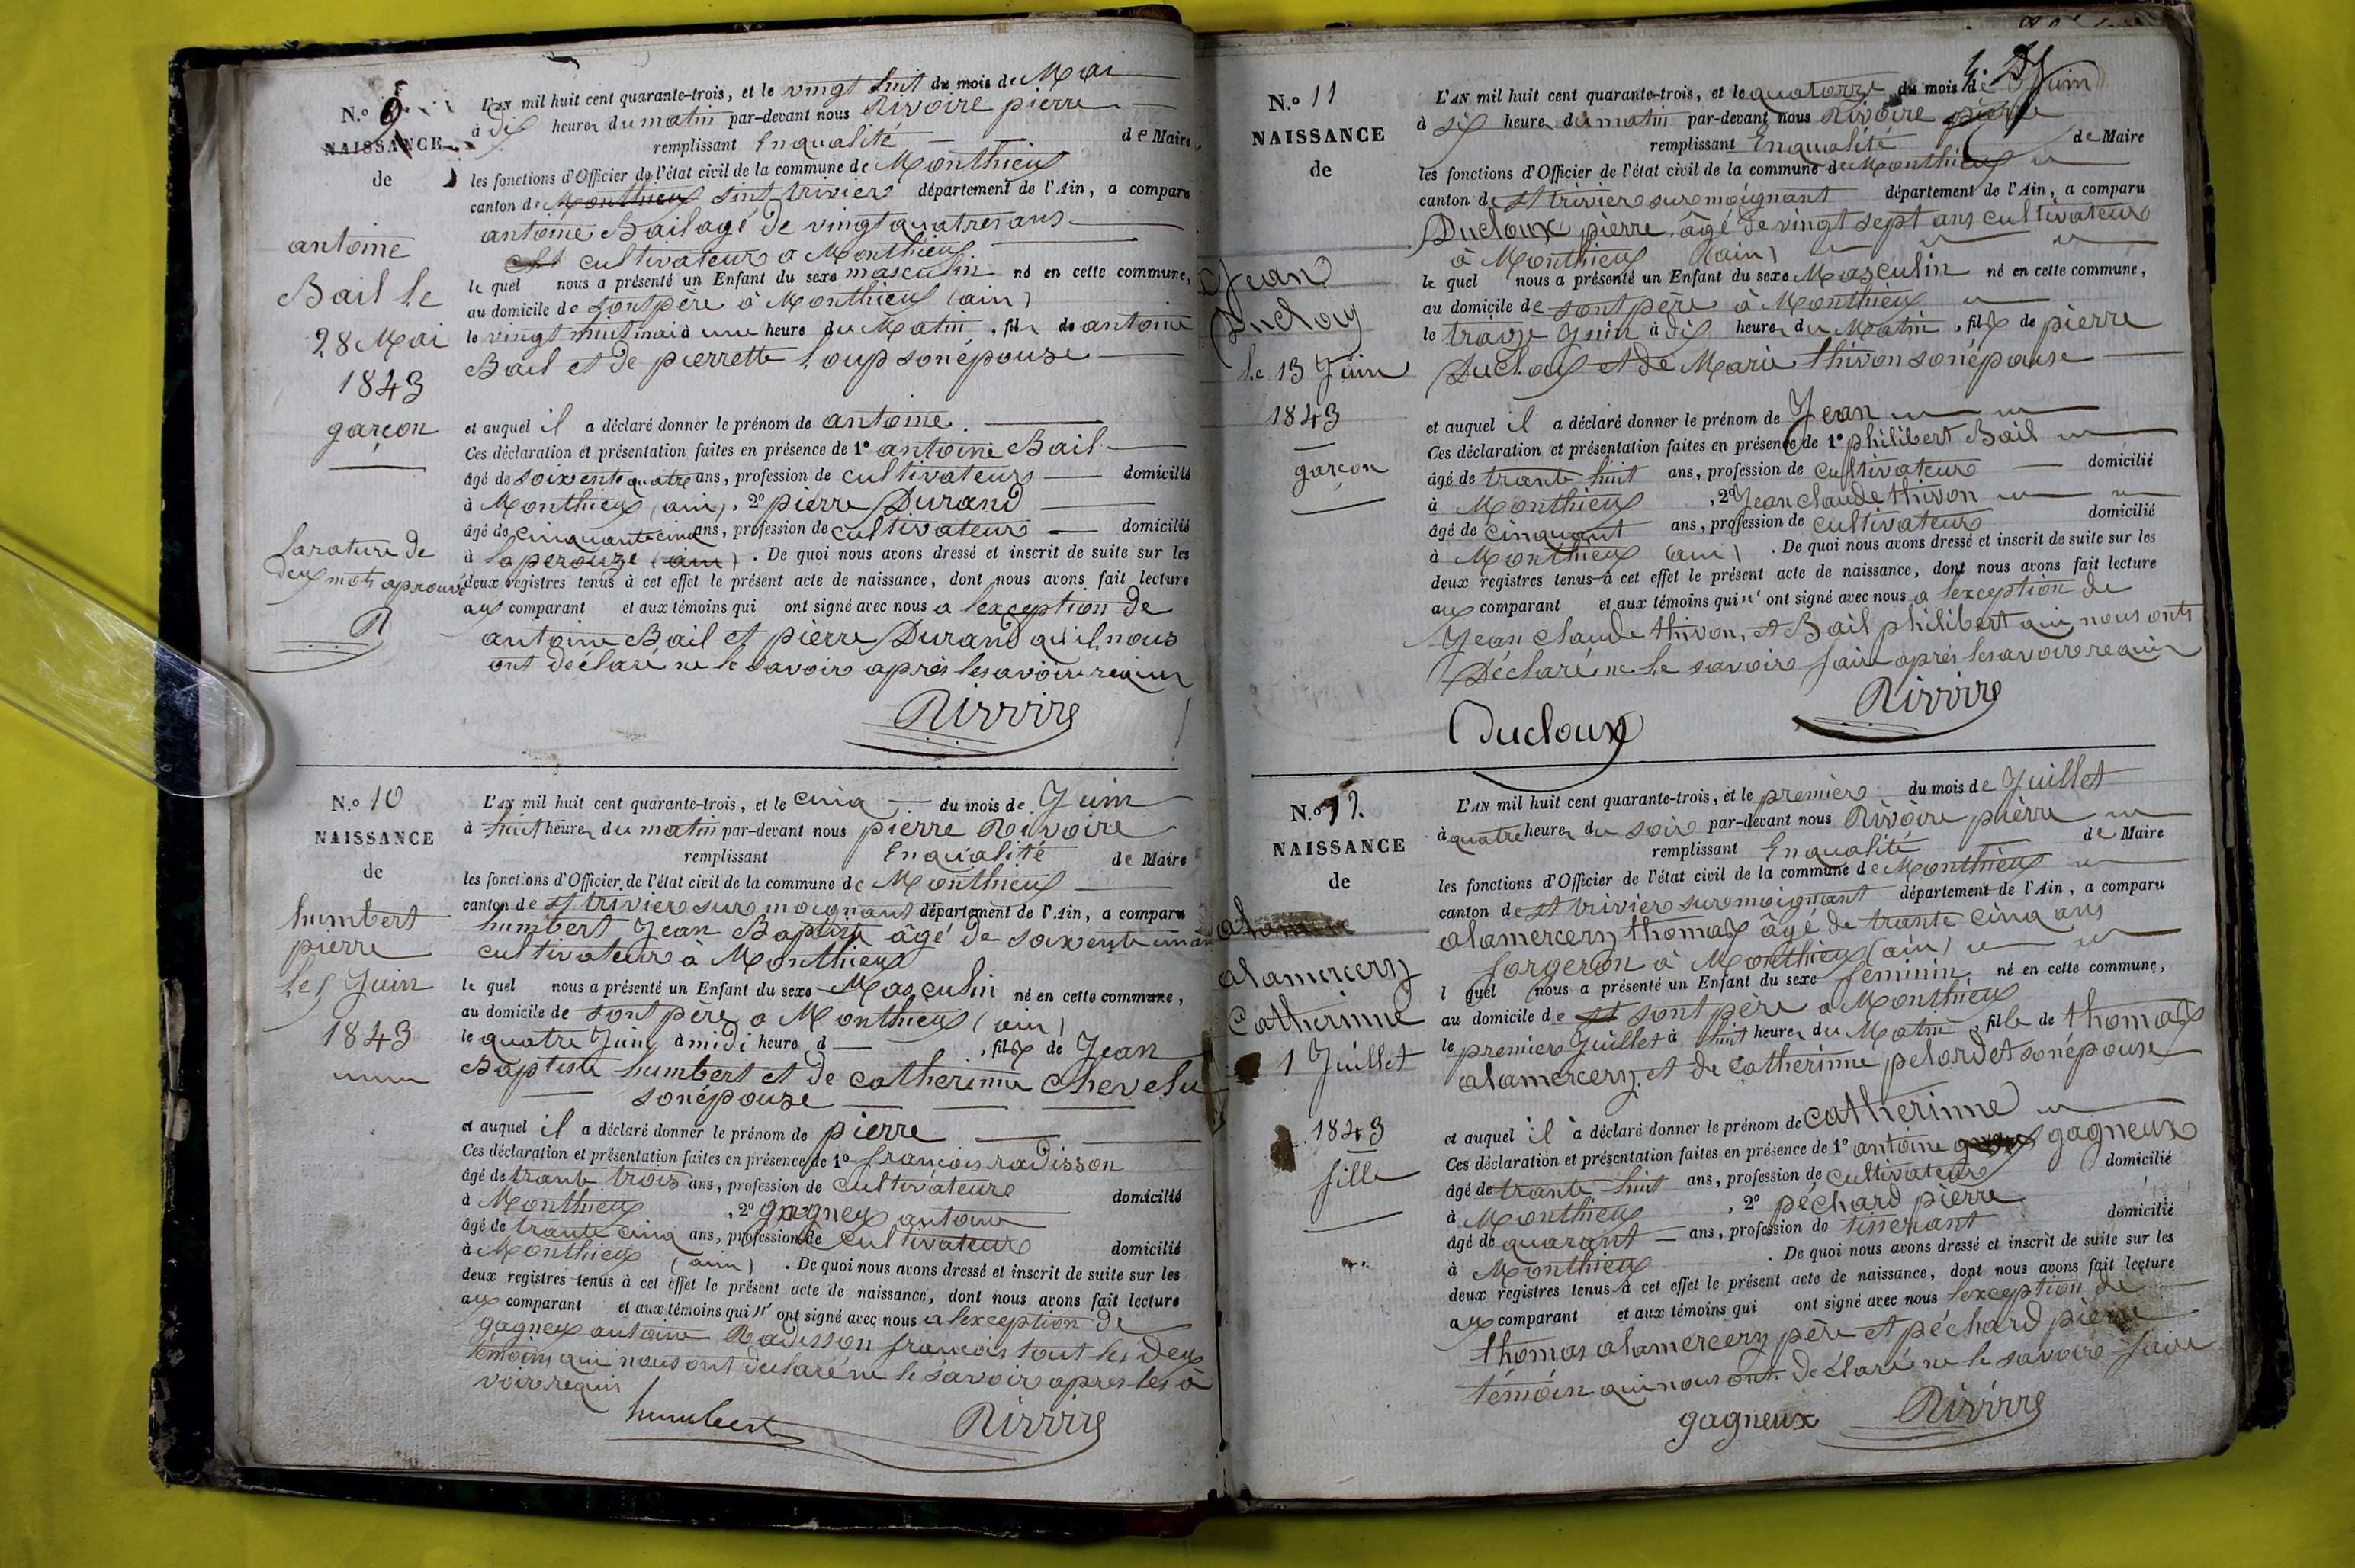 N.º 9
NAISSANCE
de
antoine
Bail le
28 Mai
1843
garçon
larature de
deux mots aprouvé
R
L'AN mil huit cent quarante-trois, et le vingt huit du mois de Mai
à dix heures du matin par-devant nous Rivoire pierre
remplissant Enqualité de Maire
les fonctions d'Officier de l'état civil de la commune de Monthieux
canton de Monthieux sint trivier département de l'Ain, a comparu
antoine Bail agé de vingt quatres ans
cultivateur a Monthieux
le quel nous a présenté un Enfant du sexe masculin né en cette commune,
au domicile de sont père à Monthieux (ain)
le vingt huit mai à une heure du Matin, fils de antoine
Bail et de pierrette Loup son épouse
et auquel il a déclaré donner le prénom de antoine.
Ces déclaration et présentation faites en présence de 1º antoine Bail
âgé de soixente quatre ans, profession de cultivateurs domicilié
à Monthieux (ain), 2º pierre Durand
âgé de cinquante cinq ans, profession de cultivateur domicilié
à laperouze (ain). De quoi nous avons dressé et inscrit de suite sur les
deux registres tenus à cet effet le présent acte de naissance, dont nous avons fait lecture
aux comparant et aux témoins qui ont signé avec nous a lexception de
antoine Bail et pierre Durand qu'il nous
ont déclaré ne le savoir après les avoir requis
Rivoire
N.º 10
NAISSANCE
de
humbert
pierre
le 5 Juin
1843
L'AN mil huit cent quarante-trois, et le cinq du mois de Juin
à huit heures du matin par-devant nous pierre Rivoire
remplissant Enqualité de Maire
les fonctions d'Officier de l'état civil de la commune de Monthieux
canton de st trivier sur moignant département de l'Ain, a comparu
humbert Jean Baptiste âgé de soixente un an
cultivateur à Monthieux
le quel nous a présenté un Enfant du sexe Masculin né en cette commune,
au domicile de sont père a Monthieux (ain)
le quatre Juin à midi heure d , fils de Jean
Baptiste humbert et de catherinne Chevelu
son épouze
et auquel il a déclaré donner le prénom de pierre
Ces déclaration et présentation faites en présence de 1º francois radisson
âgé de trante trois ans, profession de cultivateurs domicilié
à Monthieux , 2º gagneux antoine
âgé de trante cinq ans, profession de Cultivateur domicilié
à Monthieux (ain). De quoi nous avons dressé et inscrit de suite sur les
deux registres tenus à cet effet le présent acte de naissance, dont nous avons fait lecture
aux comparant et aux témoins qui n' ont signé avec nous a lexception de
gagneux antoine Radisson francois tout les deux
témoins qui nous ont declaré ne le savoir apres les a
voir requis
humbert Rivoire
N.º 11
NAISSANCE
de
Jean
Ducloux
le 13 Juin
1843
garçon
L'AN mil huit cent quarante-trois, et le quatorze du mois de Juin
à six heures du matin par-devant nous Rivoire pierre
remplissant Enqualité de Maire
les fonctions d'Officier de l'état civil de la commune de Monthieux
canton de st trivier sur moignant département de l'Ain, a comparu
Ducloux pierre âgé de vingt sept ans cultivateur
à Monthieux (ain)
le quel nous a présenté un Enfant du sexe Masculin né en cette commune,
au domicile de sont père à Monthieux
le traize Juin à dix heures du Matin, fils de pierre
Ducloux et de Marie thivon son épouse
et auquel il a déclaré donner le prénom de Jean
Ces déclaration et présentation faites en présence de 1º philibert Bail
âgé de trante huit ans, profession de cultivateur domicilié
à Monthieux , 2º Jean claude thivon
âgé de cinquant ans, profession de cultivateur domicilié
à Monthieux (ain). De quoi nous avons dressé et inscrit de suite sur les
deux registres tenus à cet effet le présent acte de naissance, dont nous avons fait lecture
aux comparant et aux témoins qui n' ont signé avec nous a lexception de
Jean claude thivon, et Bail philibert qui nous onts
Déclaré ne le savoir faire après les avoir requis
Rivoire
Ducloux
N.º 12
NAISSANCE
de
alamercery
Catherinne
1 Juillet
1843
fille
L'AN mil huit cent quarante-trois, et le premier du mois de Juillet
à quatre heures du soir par-devant nous Rivoire pierre
remplissant Enqualité de Maire
les fonctions d'Officier de l'état civil de la commune de Monthieux
canton de st trivier sur moignant département de l'Ain, a comparu
alamercery thomas âgé de trante cinq ans
forgeron à Monthieux (ain)
l quel nous a présenté un Enfant du sexe féminin né en cette commune,
au domicile de st sont père a Monthieux
le premier Juillet à huit heures du Matin, fille de thomas
alamercery et de Catherinne pelordet son épouse
et auquel il a déclaré donner le prénom de catherinne
Ces déclaration et présentation faites en présence de 1º antoine gagneux
âgé de trante huit ans, profession de cultivateur domicilié
à Monthieux , 2º péchard pierre
âgé de quarant ans, profession de tisserant domicilié
à Monthieux . De quoi nous avons dressé et inscrit de suite sur les
deux registres tenus à cet effet le présent acte de naissance, dont nous avons fait lecture
aux comparant et aux témoins qui ont signé avec nous lexception de
thomas alamercery père et péchard pierre
témoin qui nous ont déclaré ne le savoir faire
gagneux Rivoire